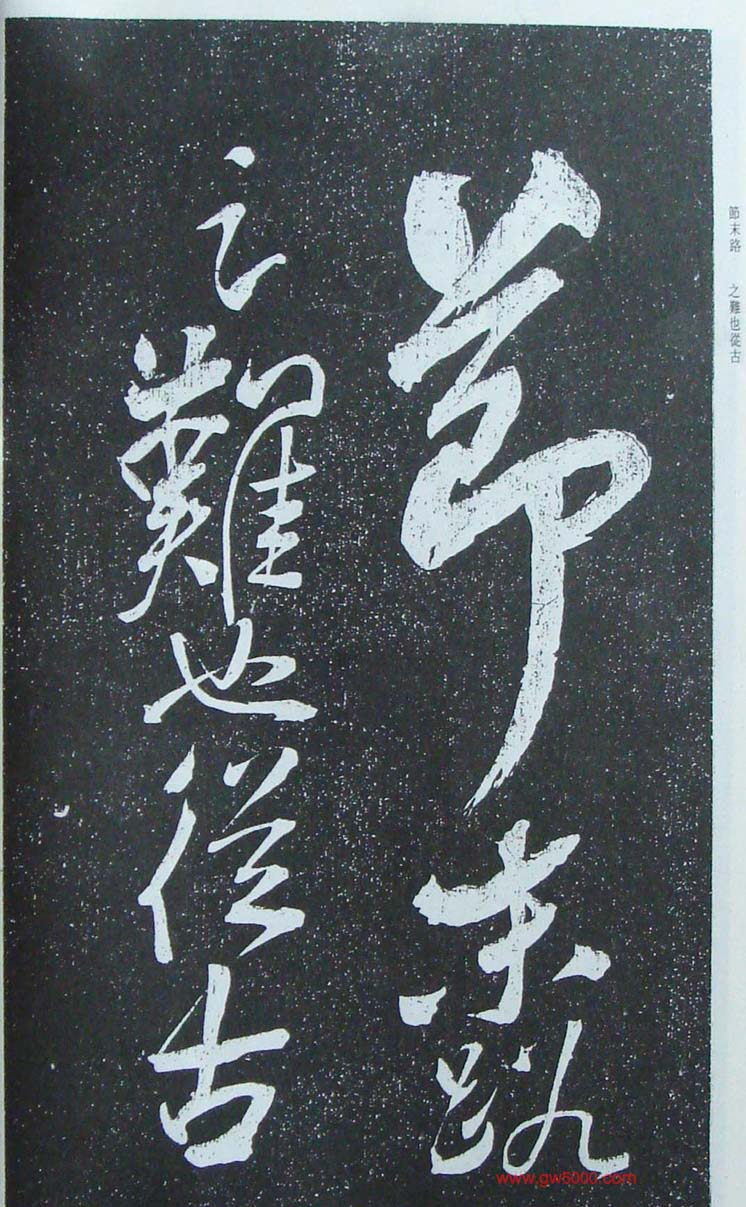 節末路
之難也從古
節末路 之難也從古
www.gw5000.com